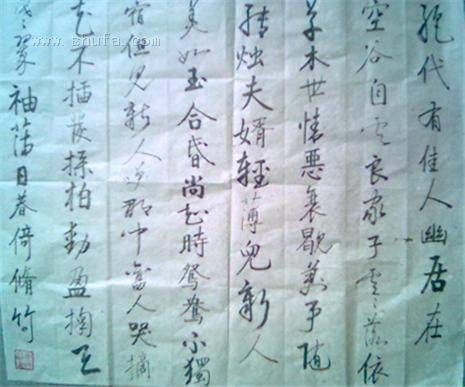 绝代有佳人幽居在
空谷自云良家子零落依
草木世情恶衰歇萬事随
转烛夫婿轻薄兒新人
美如玉合昏尚知時鸳鸯不獨
宿但见新人笑那闻舊人哭摘
花不插髮採柏動盈掬天
寒翠袖薄日暮倚脩竹